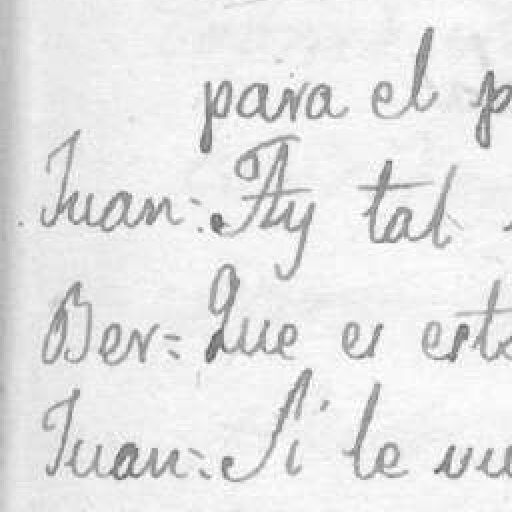 para el p
Juan: Ay tal
Ber= Que es est
Juan= Si le vu